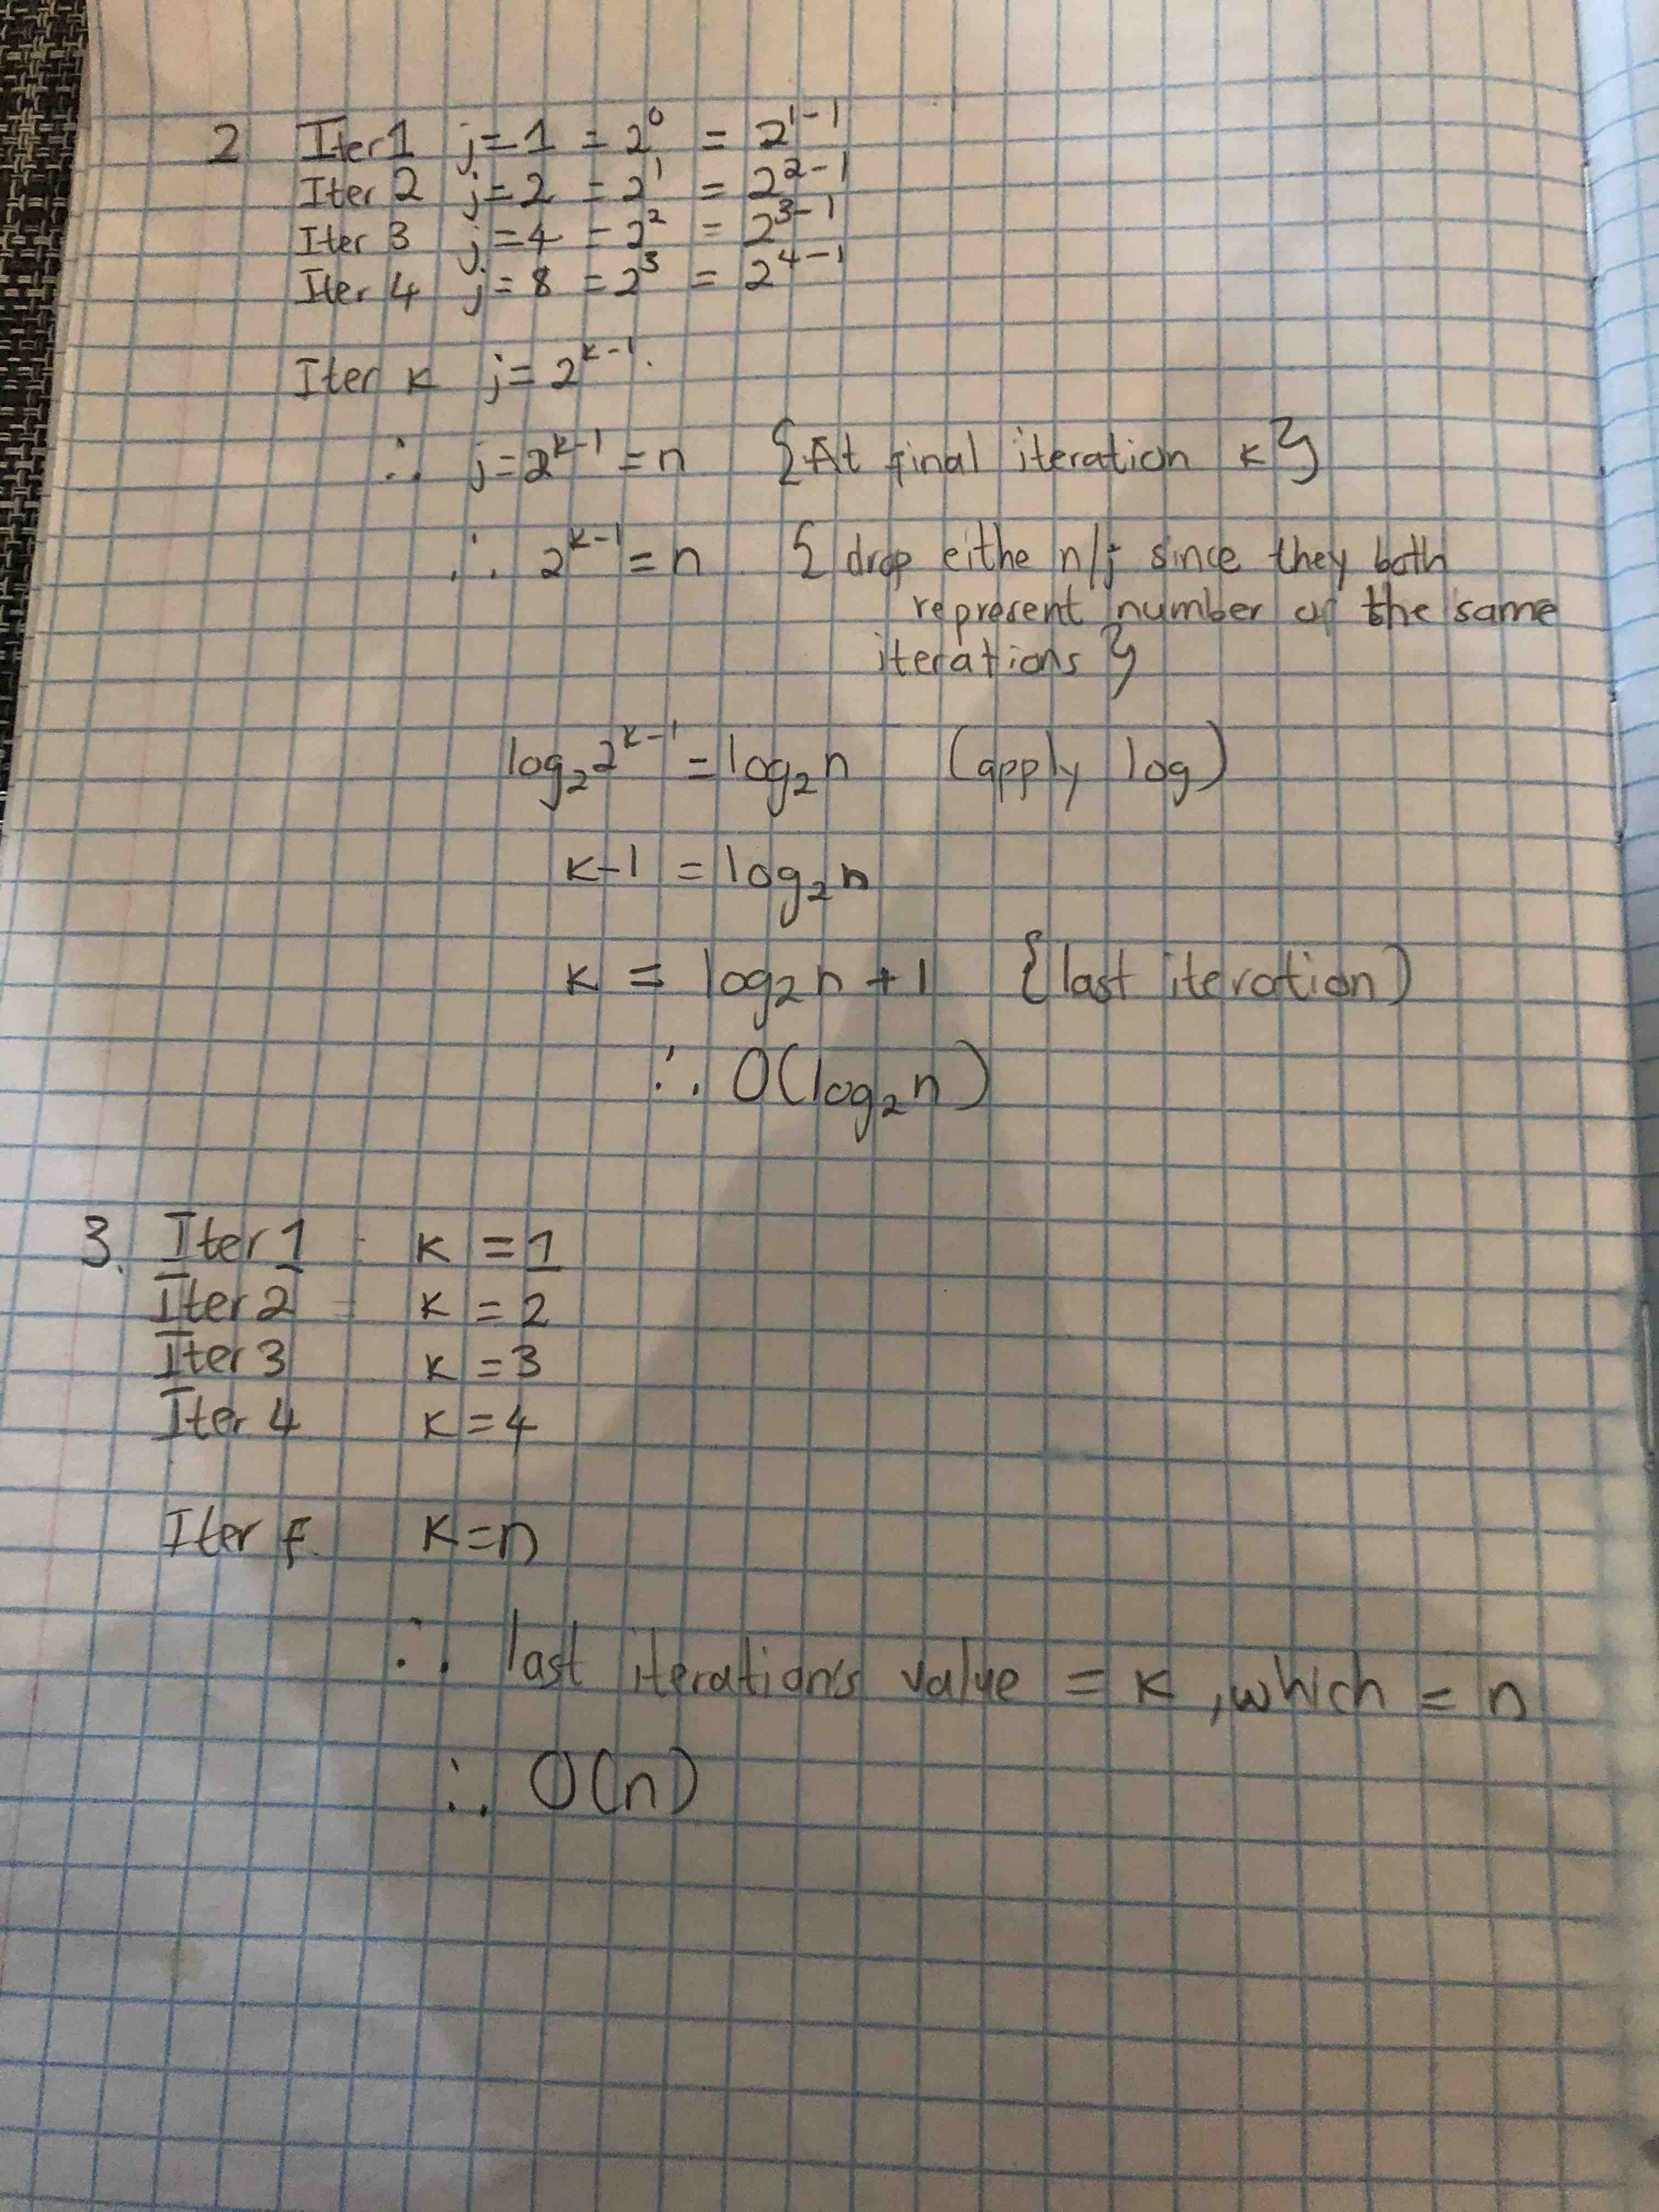 2 Iter 1 j=1 = 2⁰ = 2¹⁻¹
Iter 2 j=2 = 2¹ = 2²⁻¹
Iter 3 j=4 = 2² = 2³⁻¹
Iter 4 j=8 = 2³ = 2⁴⁻¹
Iter k j=2ᵏ⁻¹.
∴ j=2ᵏ⁻¹ = n {At final iteration k}
∴ 2ᵏ⁻¹ = n { drop eithe n/j since they both
represent number of the same
iterations }
log₂2ᵏ⁻¹ = log₂n (apply log)
k-1 = log₂n
k = log₂n + 1 {last iteration)
∴ O(log₂n)
3. Iter 1 k = 1
Iter 2 k = 2
Iter 3 k = 3
Iter 4 k = 4
Iter f. k=n
∴ last iteration's value = k, which = n
∴ O(n)